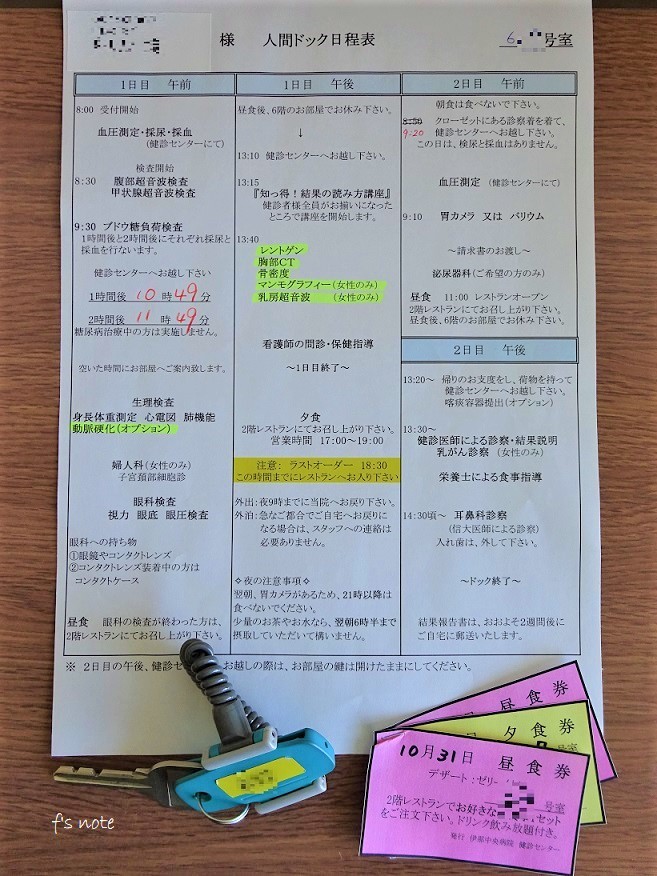 様 人間ドック日程表 6. 号室
1日目 午前
8:00 受付開始
血圧測定・採尿・採血
(健診センターにて)
検査開始
8:30 腹部超音波検査
甲状腺超音波検査
9:30 ブドウ糖負荷検査
1時間後と2時間後にそれぞれ採尿と
採血を行ないます。
健診センターへお越し下さい
1時間後 10 時 49 分
2時間後 11 時 49 分
糖尿病治療中の方は実施しません。
空いた時間にお部屋へご案内致します。
生理検査
身長体重測定 心電図 肺機能
動脈硬化(オプション)
婦人科(女性のみ)
子宮頚部細胞診
眼科検査
視力 眼底 眼圧検査
眼科への持ち物
①眼鏡やコンタクトレンズ
②コンタクトレンズ装着中の方は
コンタクトケース
昼食 眼科の検査が終わった方は、
2階レストランにてお召し上がり下さい。
1日目 午後
昼食後、6階のお部屋でお休み下さい。
↓
13:10 健診センターへお越し下さい。
13:15
『知っ得!結果の読み方講座』
健診者様全員がお揃いになった
ところで講座を開始します。
13:40
レントゲン
胸部CT
骨密度
マンモグラフィー(女性のみ)
乳房超音波 (女性のみ)
看護師の問診・保健指導
~1日目終了~
夕食
2階レストランにてお召し上がり下さい。
営業時間 17:00~19:00
注意: ラストオーダー 18:30
この時間までにレストランへお入り下さい
外出:夜9時までに当院へお戻り下さい。
外泊:急なご都合でご自宅へお戻りに
なる場合は、スタッフへの連絡は
必要ありません。
✧夜の注意事項✧
翌朝、胃カメラがあるため、21時以降は
食べないでください。
少量のお茶やお水なら、翌朝6時半まで
摂取していただいて構いません。
2日目 午前
朝食は食べないで下さい。
8:50 クローゼットにある診察着を着て、
9:20 健診センターへお越し下さい。
この日は、検尿と採血はありません。
血圧測定 (健診センターにて)
9:10 胃カメラ 又は バリウム
~請求書のお渡し~
泌尿器科(ご希望の方のみ)
昼食 11:00 レストランオープン
2階レストランにてお召し上がり下さい。
昼食後、6階のお部屋でお休み下さい。
2日目 午後
13:20~ 帰りのお支度をし、荷物を持って
健診センターへお越し下さい。
喀痰容器提出(オプション)
13:30~
健診医師による診察・結果説明
乳がん診察 (女性のみ)
栄養士による食事指導
14:30頃~ 耳鼻科診察
(信大医師による診察)
入れ歯は、外して下さい。
~ドック終了~
結果報告書は、おおよそ2週間後に
ご自宅に郵送いたします。
※ 2日目の午後、健診セ お越しの際は、お部屋の鍵は開けたままにしてください。
昼食券
夕食券
号室
10月31日 昼食券
デザート:ゼリー
号室
2階レストランでお好きな セット
をご注文下さい。ドリンク飲み放題付き。
発行 伊那中央病院 健診センター
f's note